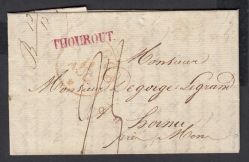 THOUROUT.
Monsieur
Monsieur Degorge Legrand
à
hornu
près Mons